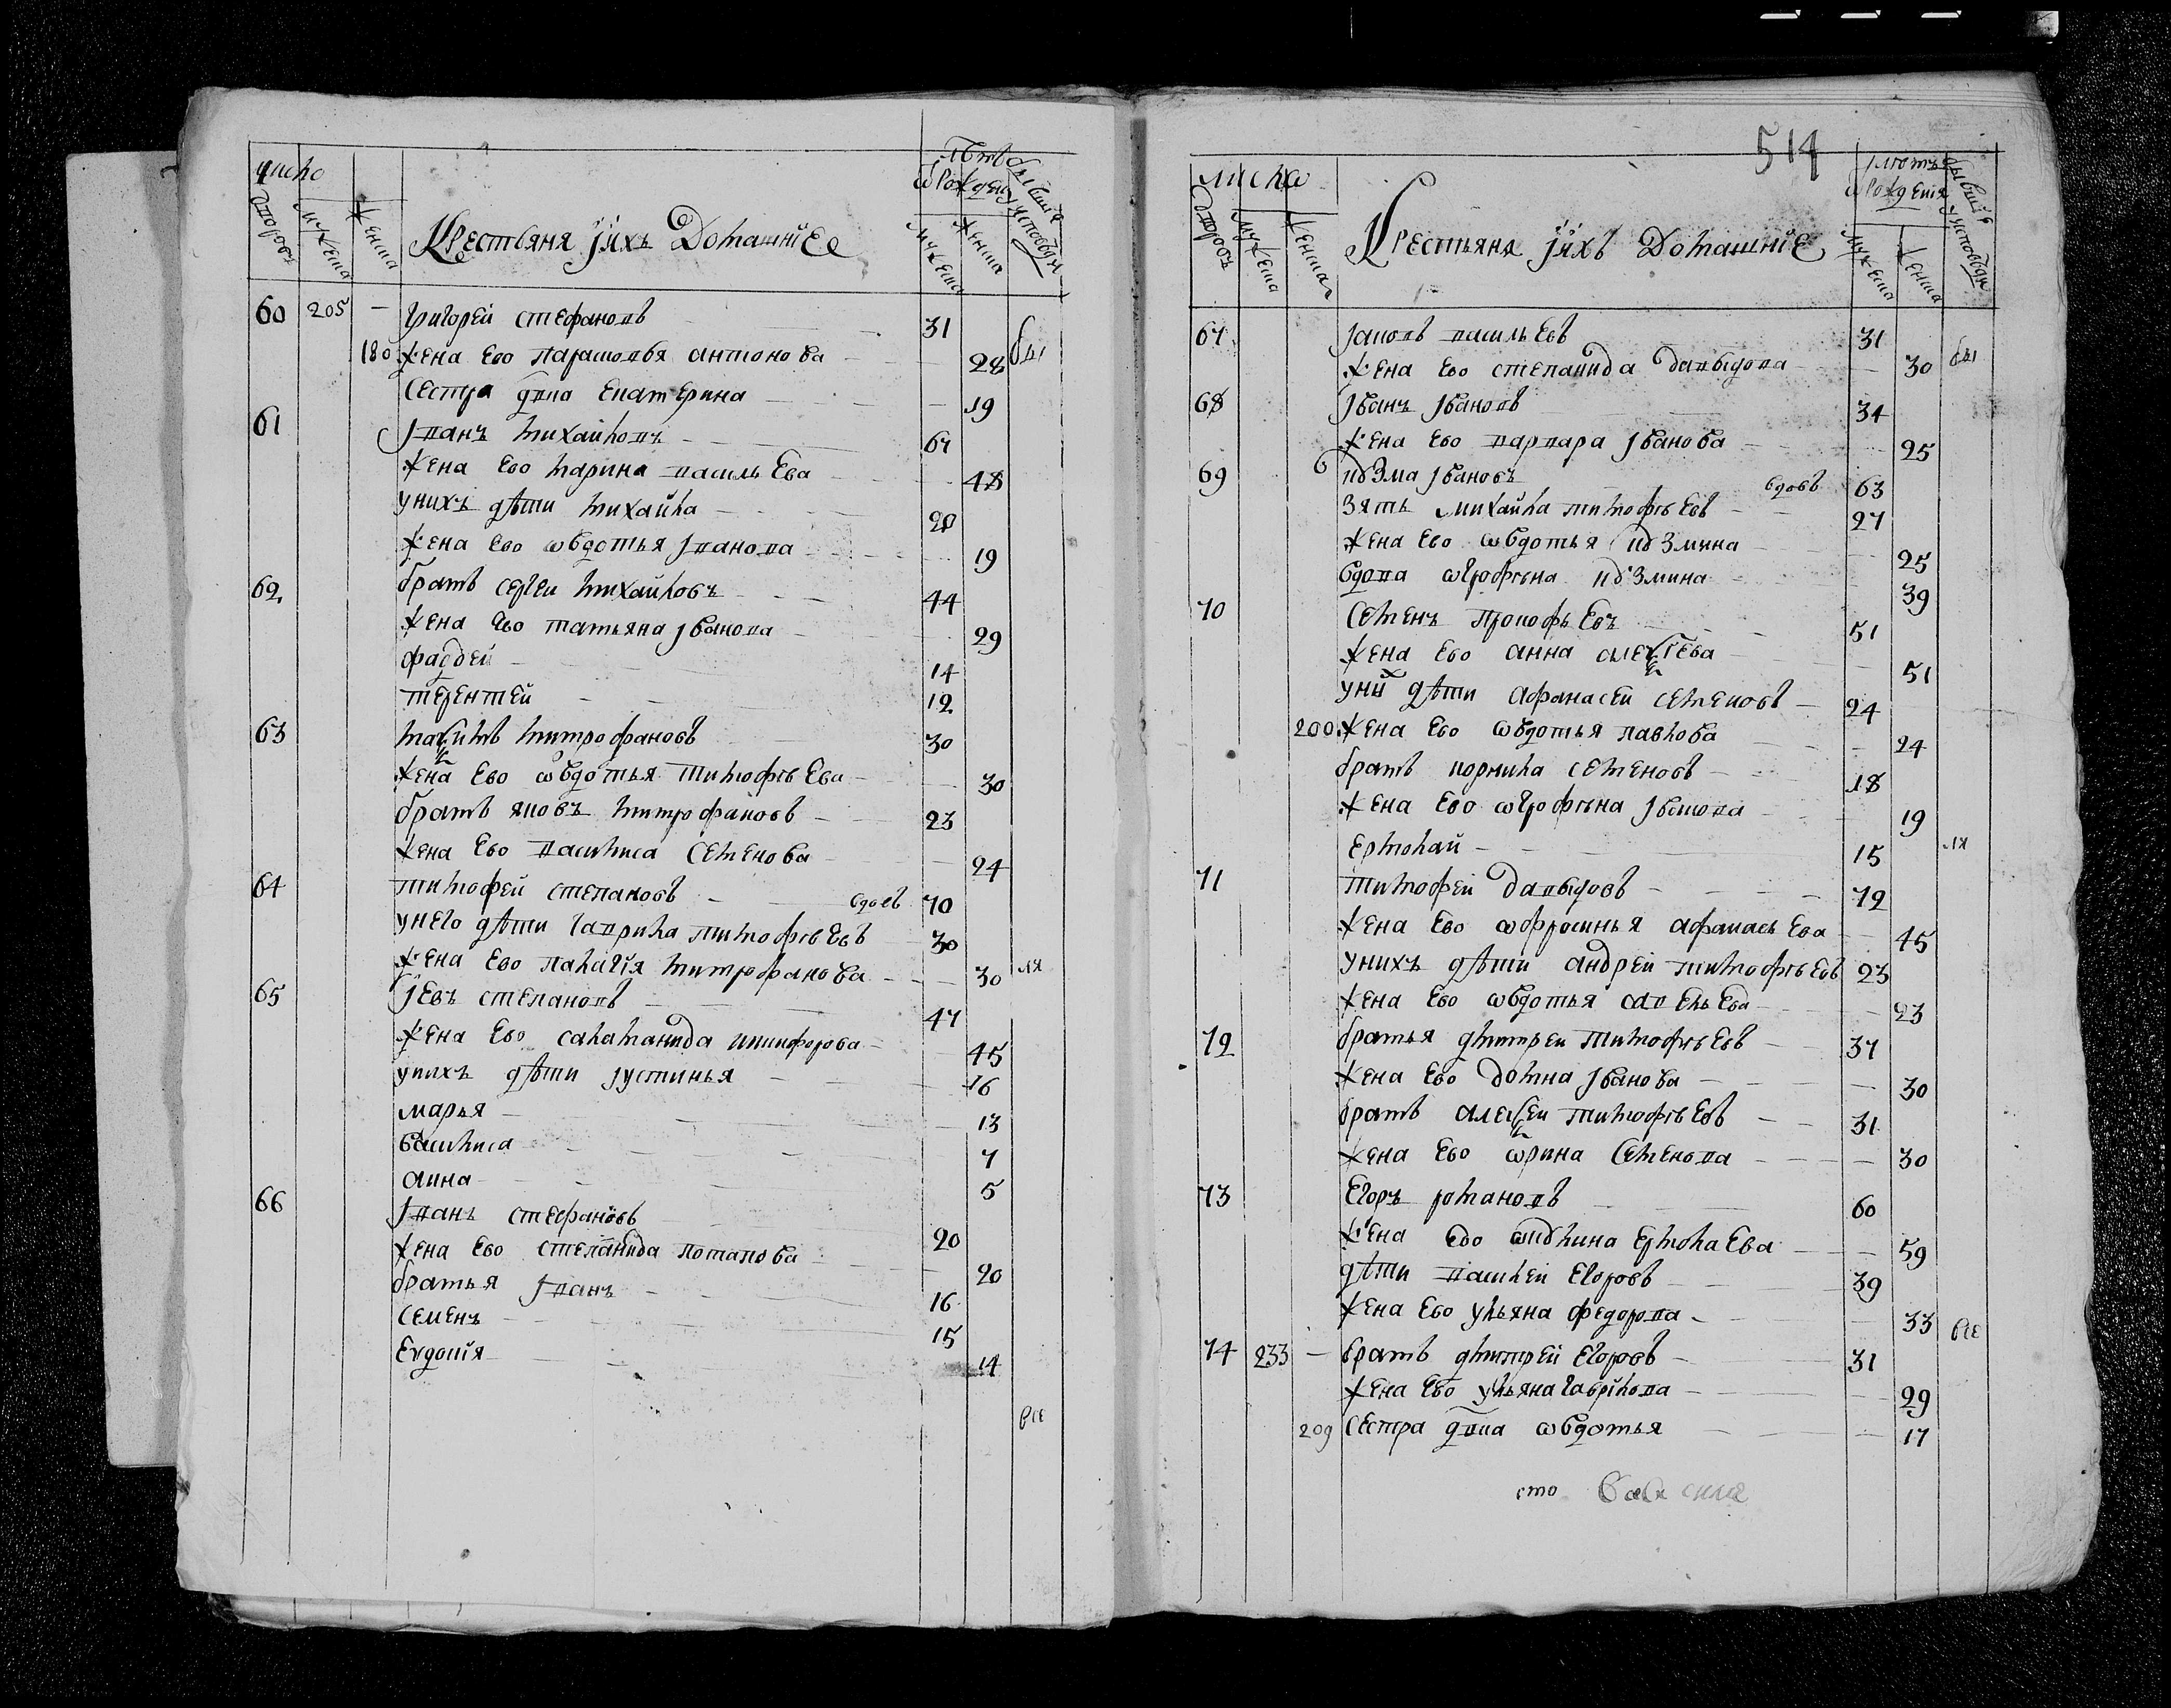 число
лѣтъ
ѿ рождения
бывшiе у исповѣди
дворовъ
мужеска
женска
Крестьяня iихъ Домашнiее
мужеска
женска
60 205 – григорей стефановъ 31
180 жена ево парасковья антонова 28 бы
сестра двка екатерина 19
61 Iванъ михайловъ 67
жена ево марина васильева 48
унихъ дѣти михайла 20
жена ево ѡвдотья Iванова 19
62 братъ сергеи михайловъ 44
жена ево татьяна Iванова 29
фаддей 14
терентей 12
63 маѯимъ митрофановъ 30
жена ево ѡвдотья тимофѣева 30
братъ яковъ митрофановъ 23
жена ево василиса семенова 24
64 тимофей степановъ вдовъ 70
унего дѣти гаврила тимофѣевъ 30
жена ево палагiя митрофанова 30 ли
65 Iевъ степановъ 47
жена ево саламанида никифорова 45
унихъ дѣти устинья 16
марья 13
василиса 7
анна 5
66 Iванъ стефановъ 20
жена ево степанида потапова 20
братья Iванъ 16
семенъ 15
Евдокiя 14
все
514
числа
лѣтъ
ѿ рождения
бывшiе у исповѣди
дворовъ
мужеска
женска
Крестьяня iихъ Домашнiе
мужеска
женска
67 Iаковъ васильевъ 31
жена ево степанида давыдова 30 бы
68 Iванъ Iвановъ 34
жена ево варвара Iванова 25
69 кузма Iвановъ вдовъ 63
зять михайла тимофѣевъ 27
жена ево ѡвдотья кузмина 25
вдова ѡгрофѣна кузмина 39
70 семенъ прокофьевъ 51
жена ево анна алеѯѣева 51
уних дѣти афанасей семеновъ 24
200 жена ево ѡвдотья павлова 24
братъ корнила семеновъ 18
жена ево ѡгрофѣна Iвлиова 19
ермолай 15 ли
71 тимофей давыдовъ 72
жена ево ѡфросинья афанасьева 45
унихъ дѣти андрей тимофѣевъ 23
жена ево ѡвдотья савельева 23
72 братья дмитрей тимофѣевъ 37
жена ево домна Iванова 30
братъ алеѯѣй тимофѣевъ 31
жена ево ѡрина семенова 30
73 Егоръ романовъ 60
жена ево акулина ермолаева 59
дѣти василей егоровъ 39
жена ево ульяна федорова 33 все
74 233 – братъ дмитрей егоровъ 31
жена ево ульяна гаврiлова 29
209 сестра двка ѡвдотья 17
сто